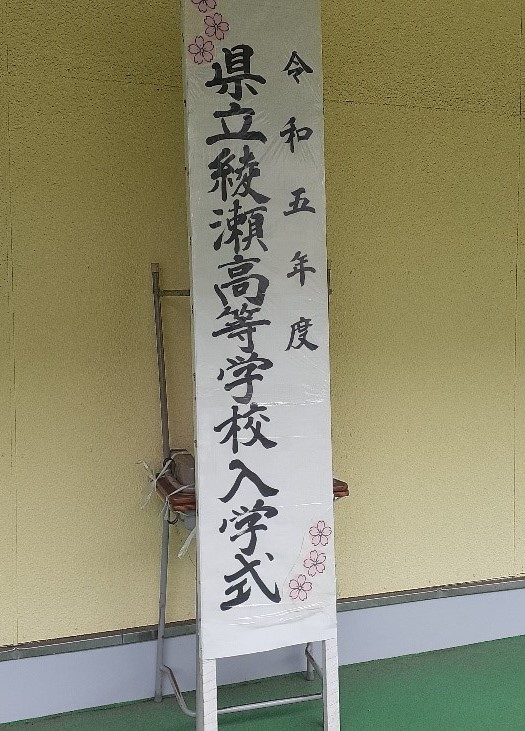 令和五年度
県立綾瀬高等学校入学式